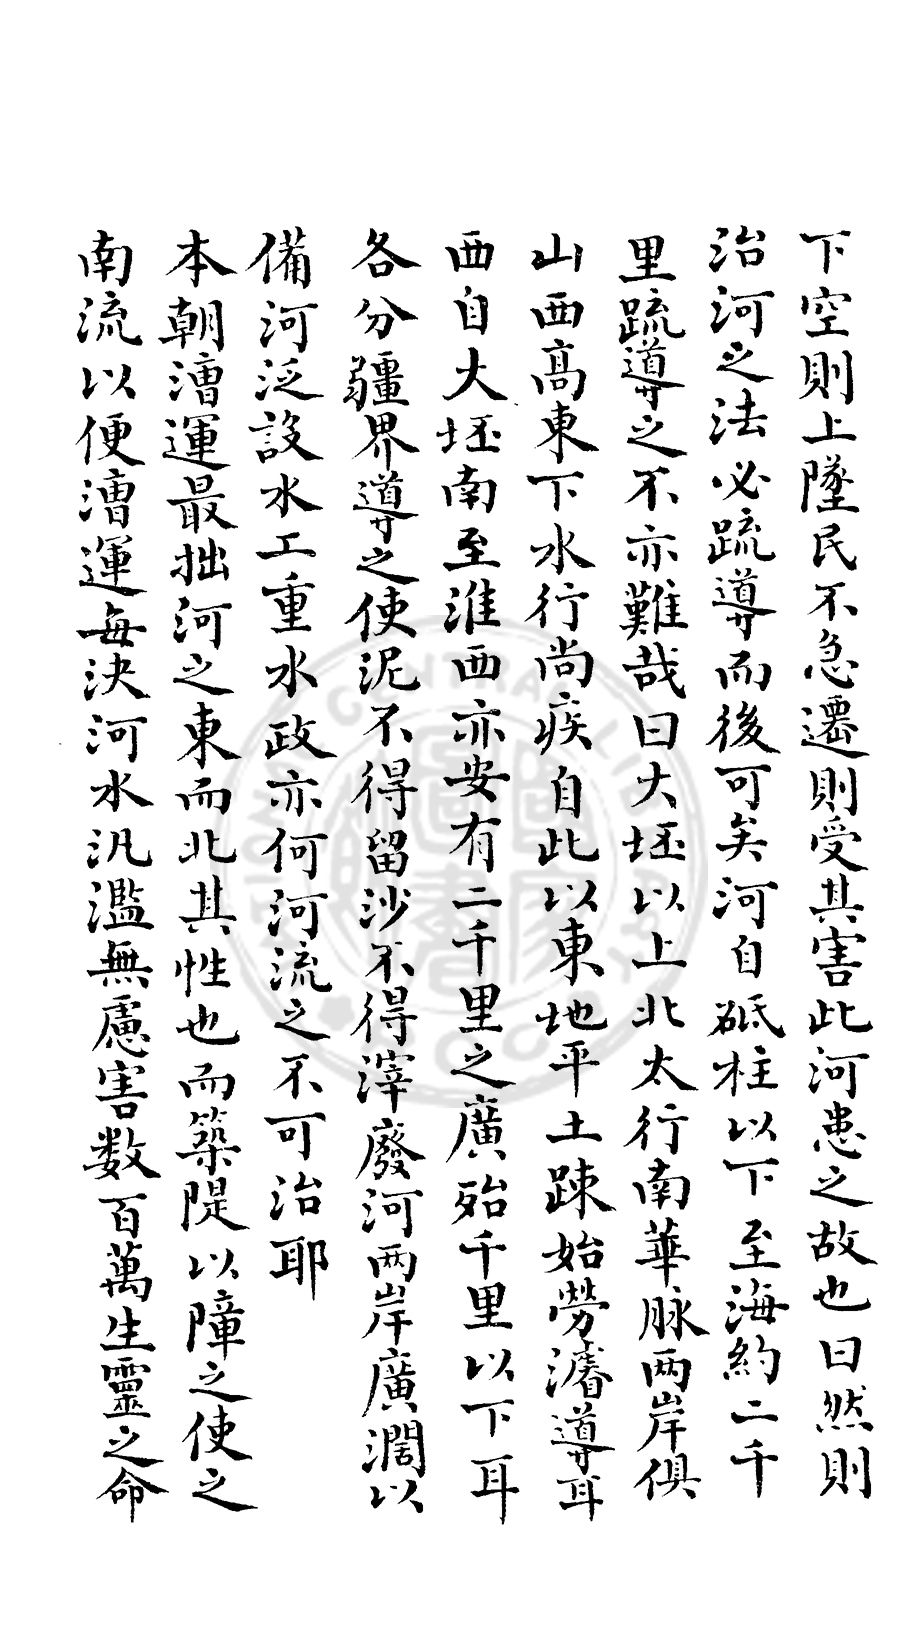 下空則上墜民不急遷則受其害此河患之故也曰然則
治河之法必疏導而後可矣河自砥柱以下至海約二千
里疏導之不亦難哉曰大坯以上北太行南華脉两岸俱
山西高東下水行尚疾自此以東地平土踈始勞濬導耳
西自大坯南至淮西亦安有二千里之廣殆千里以下耳
各分疆界導之使泥不得留沙不得滓廢河两岸廣濶以
備河泛設水工重水政亦何河流之不可治耶
本朝漕運最拙河之東而北其性也而築隄以障之使之
南流以便漕運每决河水汎濫無慮害数百萬生靈之命